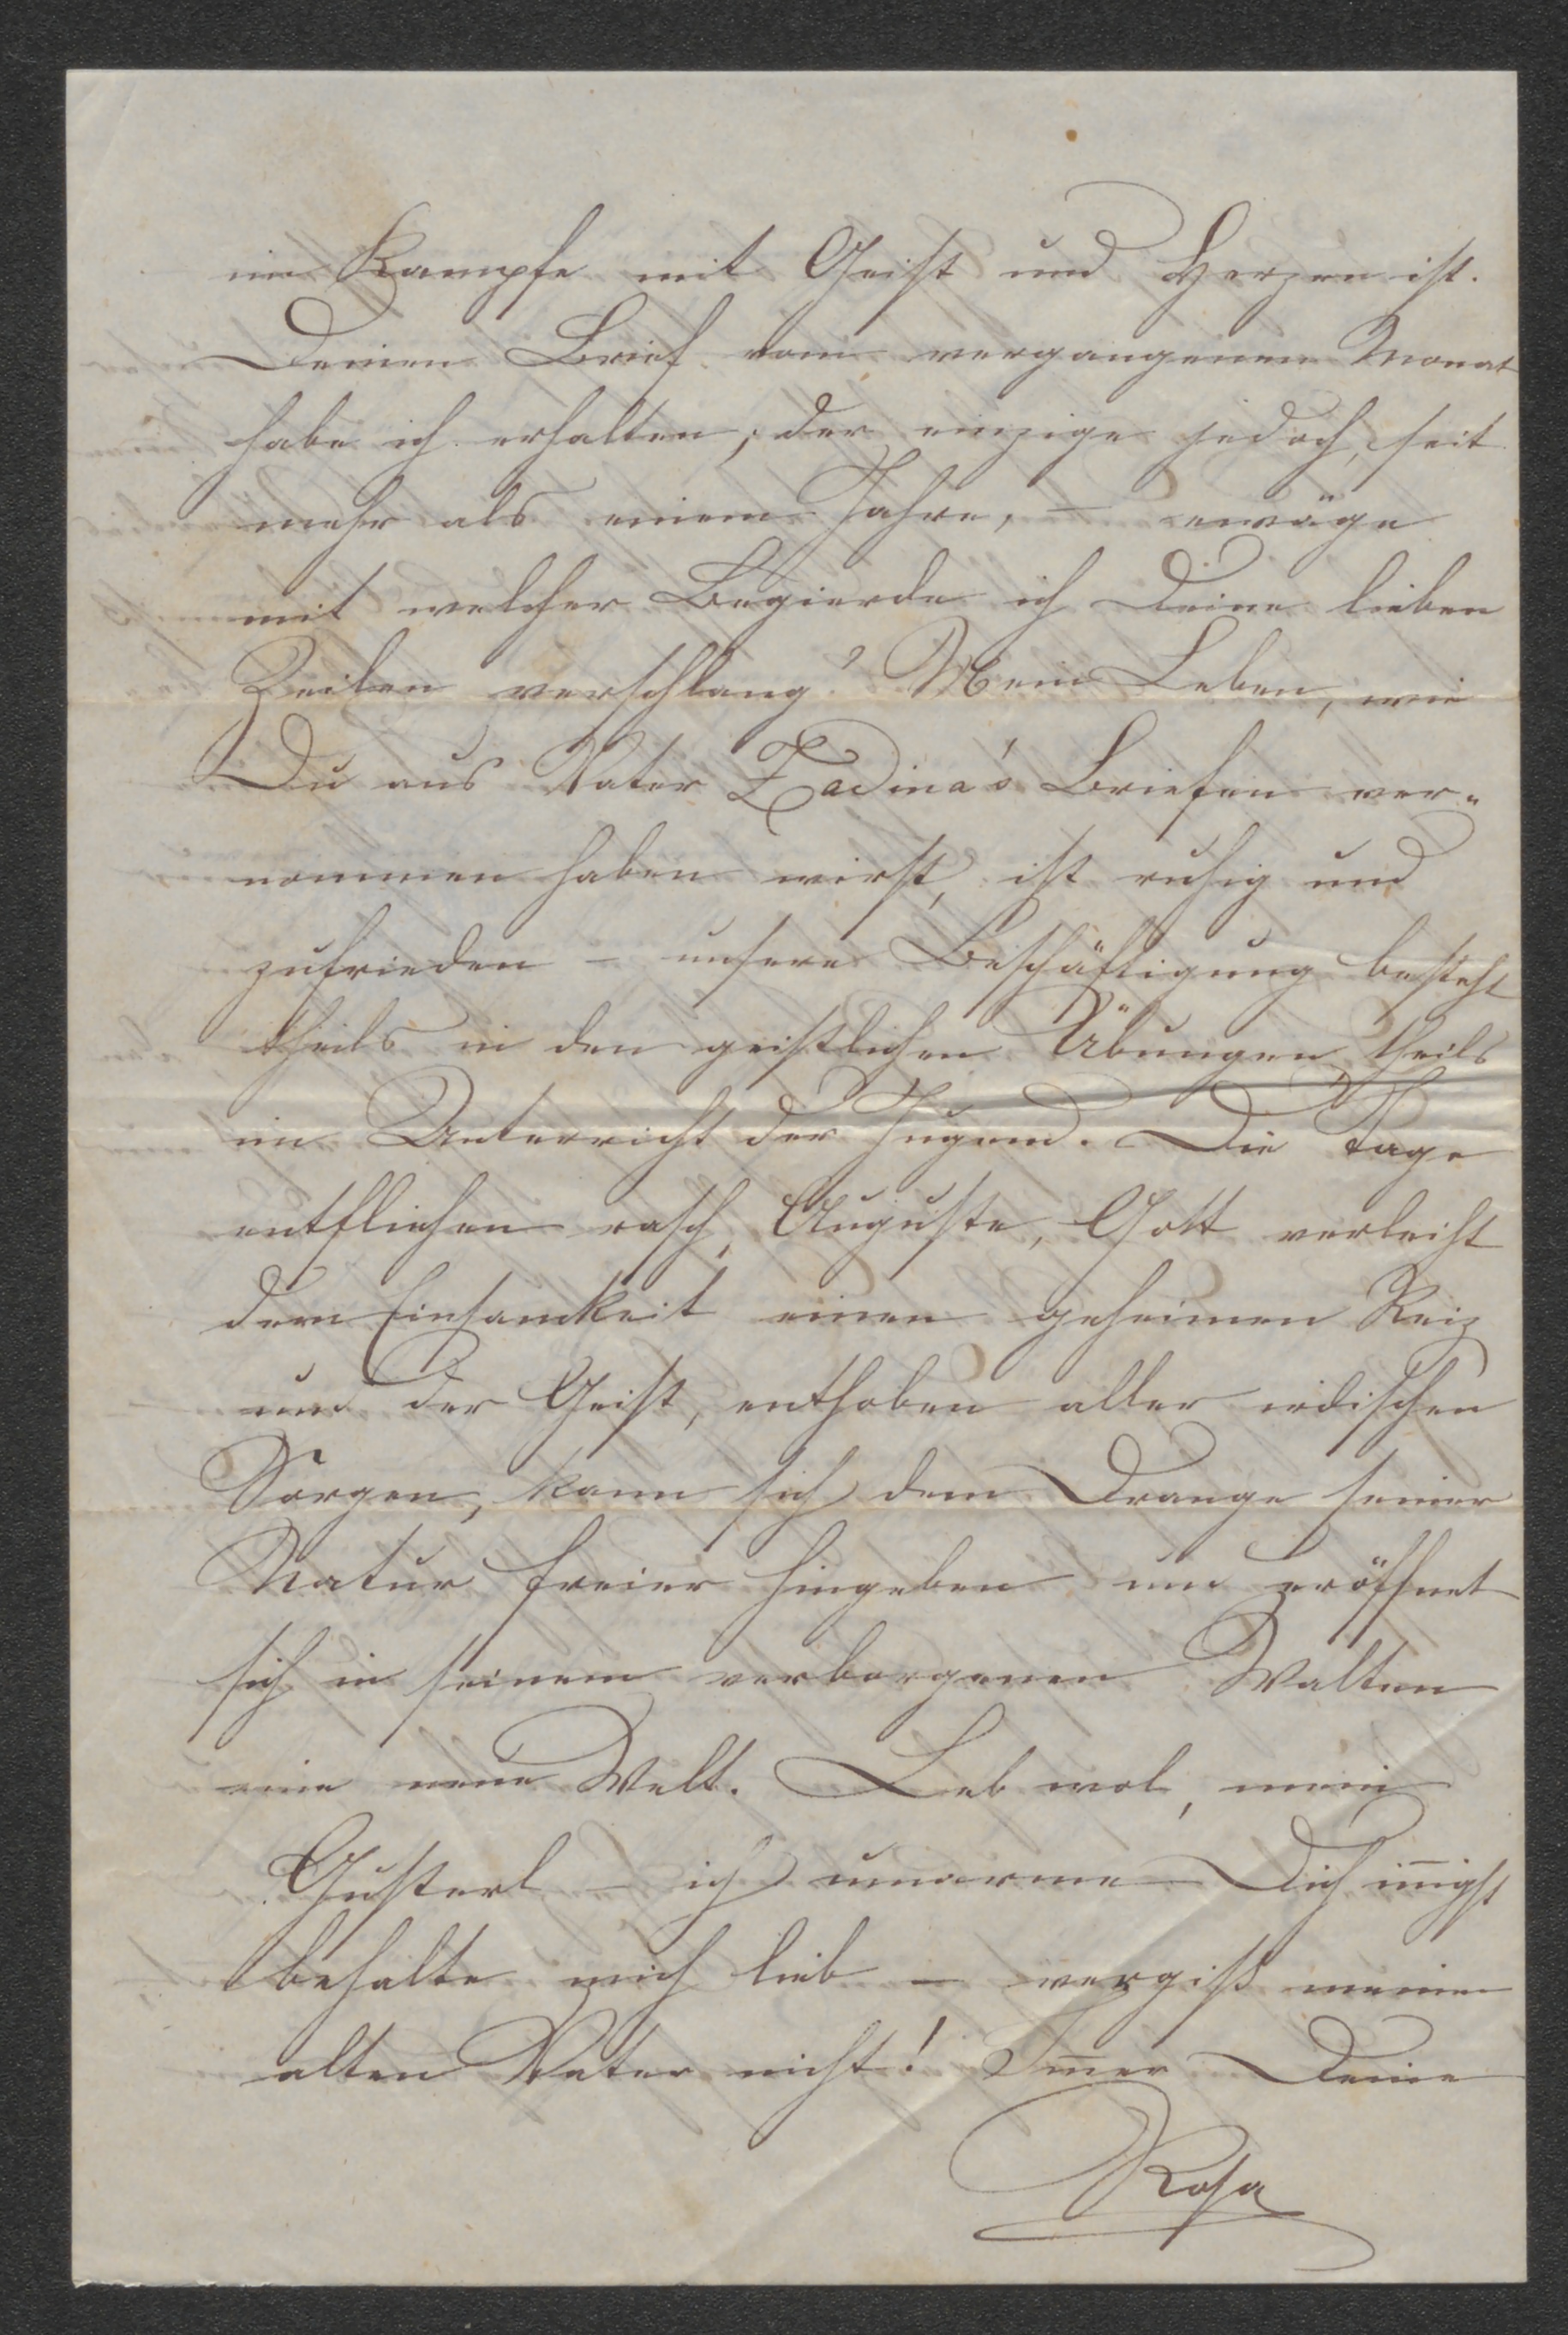 im Kampfe mit Geist und Herzen ist.
Deinen Brief vom vergangenen Monat
habe ich erhalten; der einzige jedoch, seit
mehr als einem Jahre, – erwäge
mit welcher Begierde ich Deine lieben
Zeilen verschlang? Mein Leben, wie
Du aus Vater Zadina's Briefen ver-
nommen haben wirst, ist ruhig und
zufrieden – unsere Beschäftigung besteht
theils in den geistlichen Übungen, theils
im Unterricht der Jugend. Die Tage
entfliehen rasch, Auguste, Gott verleiht
der Einsamkeit einen geheimen Reiz
und der Geist, enthoben aller irdischen
Sorgen, kann sich dem Drange seiner
Natur freier hingeben und eröffnet
sich in seinem verborgenen Walten
eine neue Welt. Leb wol, mein
Gusterl – ich umarme Dich in̅igst
behalte mich lieb – vergiß meinen
alten Vater nicht! Im̅er Deine
Rosa